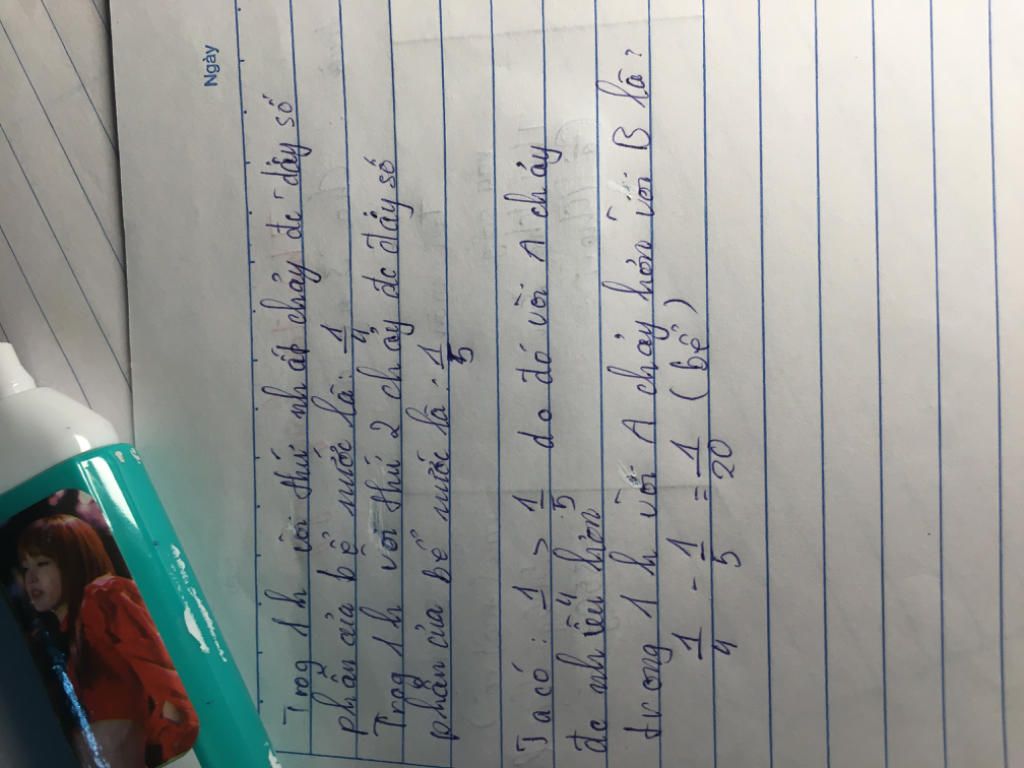 Ngày
Trog 1h vòi thứ nhất chảy đc đầy số
phần của bể nước là: 1/4
Trog 1h vòi thứ 2 chảy đc đầy số
phần của bể nước là: 1/5
Ta có: 1/4 > 1/5 do đó vòi A chảy
đc nhiều hơn
trong 1h vòi A chảy hơn vòi B là?
1/4 - 1/5 = 1/20 (bể)